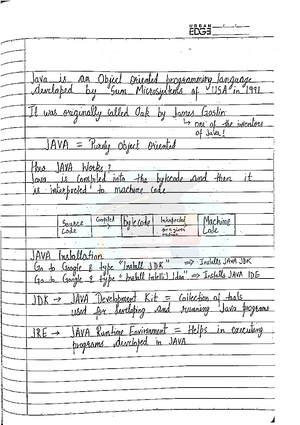 URBAN
EDGE
Java is an Object Oriented programming language
developed by Sun Microsystems of USA in 1991
It was originally called Oak by James Goslin
↳ one of the inventors
of Java!
JAVA = Purely Object Oriented
How JAVA Works?
Java is compiled into the bytecode and then it
is interpreted to machine code
Source Code Compiled bytecode Interpreted Machine Code
JAVA Installation
Go to Google & type "Install JDK" ⇒ Installs JAVA JDK
Go to Google & type "Install IntelliJ Idea" ⇒ Installs JAVA IDE
JDK → JAVA Development Kit = Collection of tools
used for developing and running Java programs
JRE → JAVA Runtime Environment = Helps in executing
programs developed in JAVA